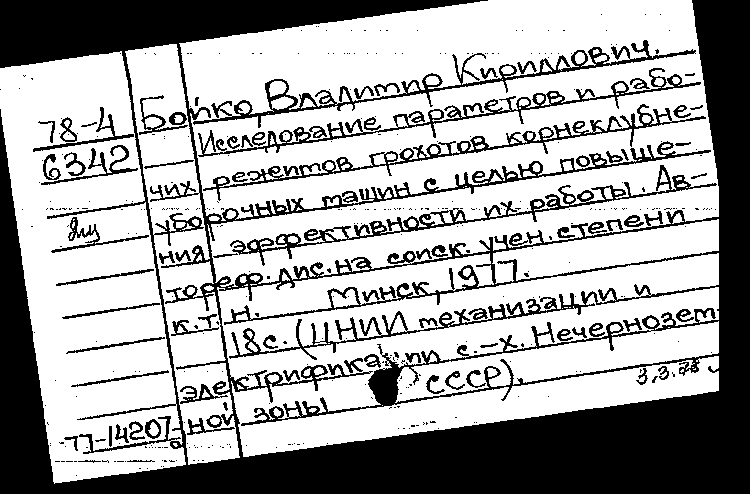 Бойко, Владимир Кириллович.
78-4
6342
Исследование параметров и рабо-
чих режимов грохотов корнеклубне-
уборочных машин с целью повыше-
ния эффективности их работы. Ав-
тореф. дис. на соиск. учен. степени
к.т.н. Минск, 1977.
18с. (ЦНИИ механизации и
электрификации с.-х. Нечернозем-
ной зоны СССР).
77-14207а
3.3.78